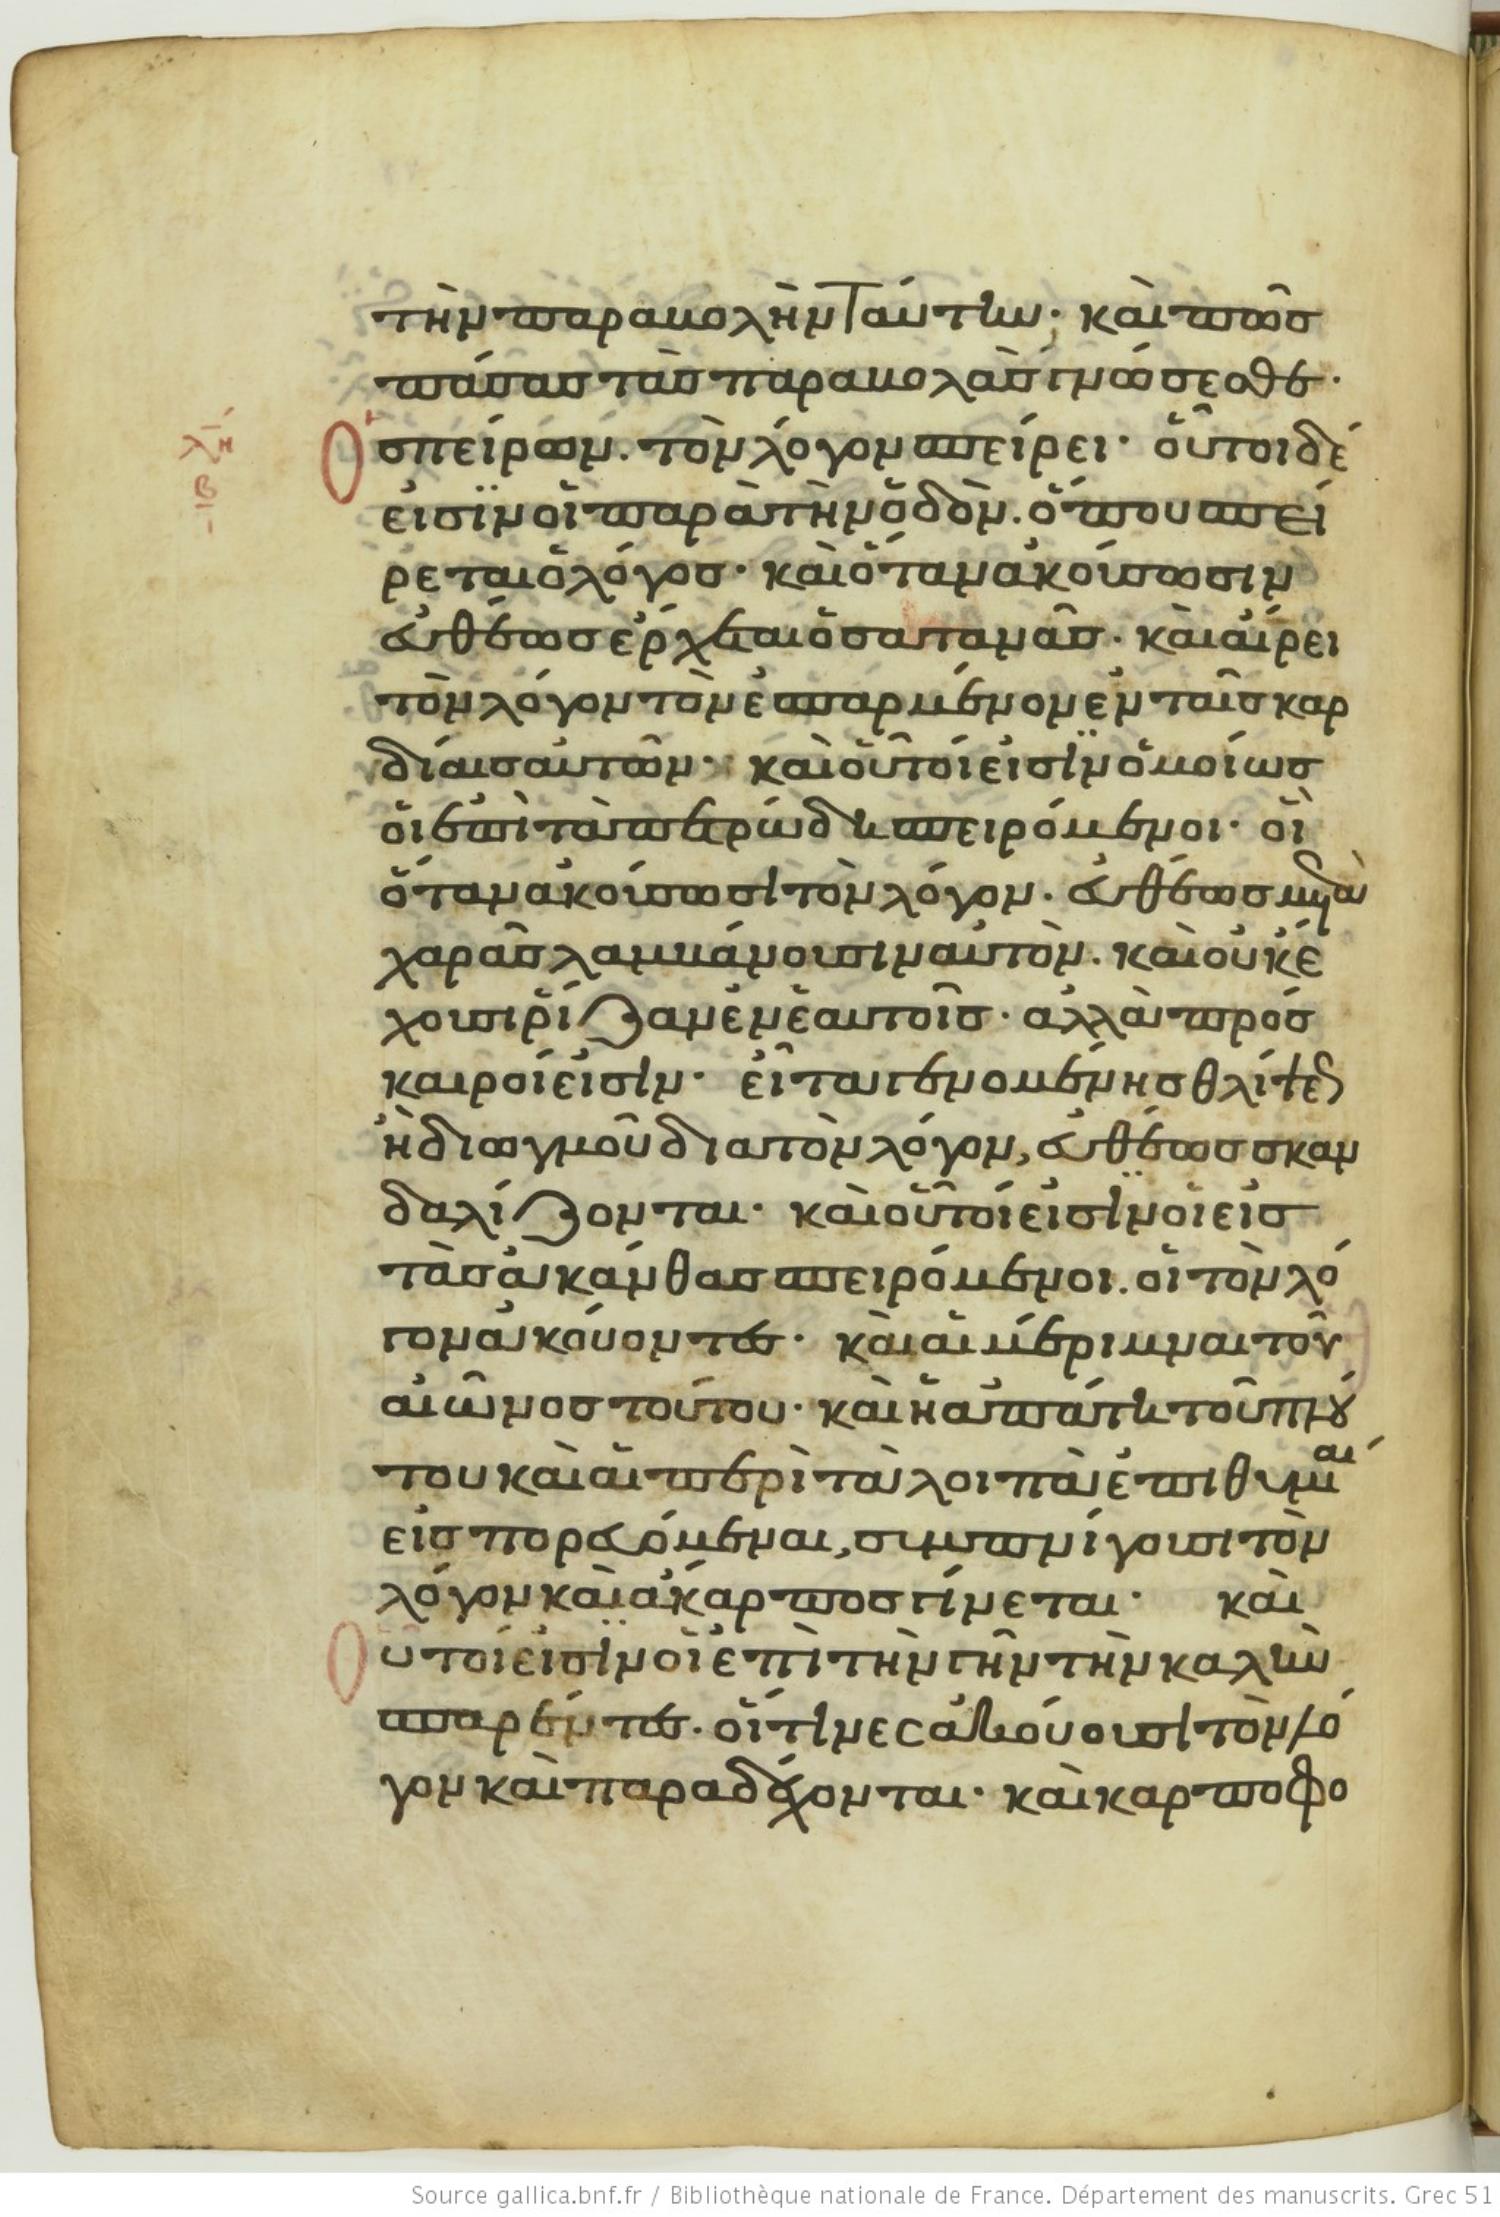 τὴν παραβολὴν ταύτην· καὶ πῶσ
πάσας τὰς παραβολὰς γνώσεσθε·
Ὁ σπείρων. τὸν λόγον σπείρει· οὗτοι δέ
εἰσϊν οἱ παρὰ τὴν ὁδὸν. ὅπου σπεί
ρεται ὁ λόγοσ· καὶ ὅταν ἀκούσωσιν
εὐθέωσ ἔρχεται ὁ σατανᾶσ. καὶ αἴρει
τὸν λόγον τὸν ἐσπαρμένον ἐν ταῖσ καρ
δίαισ αὐτῶν· καὶ οὗτοί εἰσϊν ὁμοίωσ
οἱ ἐπὶ τὰ πετρώδη σπειρόμενοι· οἳ
ὅταν ἀκούσωσι τὸν λόγον. εὐθέωσ μετὰ
χαρᾶσ λαμβάνουσιν αὐτὸν. καὶ οὐκ ἔ
χουσι ῥίζαν ἐν ἑαυτοῖσ· ἀλλὰ πρόσ
καιροί εἰσιν· εἶτα γενομένησ θλίψεωσ
ἢ διωγμοῦ δια τὸν λόγον, εὐθέωσ σκαν
δαλίζονται· καὶ οὗτοί εἰσϊν οἱ εἰσ
τὰσ ἀκάνθασ σπειρόμενοι. οἱ τὸν λό
γον ἀκούοντεσ· καὶ αἱ μέριμναι τοῦ
αἰῶνοσ τούτου· καὶ ἡ ἀπάτη τοῦ πλού
του καὶ αἱ περὶ τὰ λοιπὰ ἐπιθυμίαι
εἰσπορευόμεναι, συμπνίγουσι τὸν
λόγον καὶ ἄκαρποσ γίνεται· καὶ
Οὗτοί εἰσϊν οἱ ἐπὶ τὴν γῆν τὴν καλὴν
σπαρέντεσ. οἵτινες ἀκούουσι τὸν λό
γον καὶ παραδέχονται· καὶ καρποφο
λη
β
Source gallica.bnf.fr / Bibliothèque nationale de France. Département des manuscrits. Grec 51